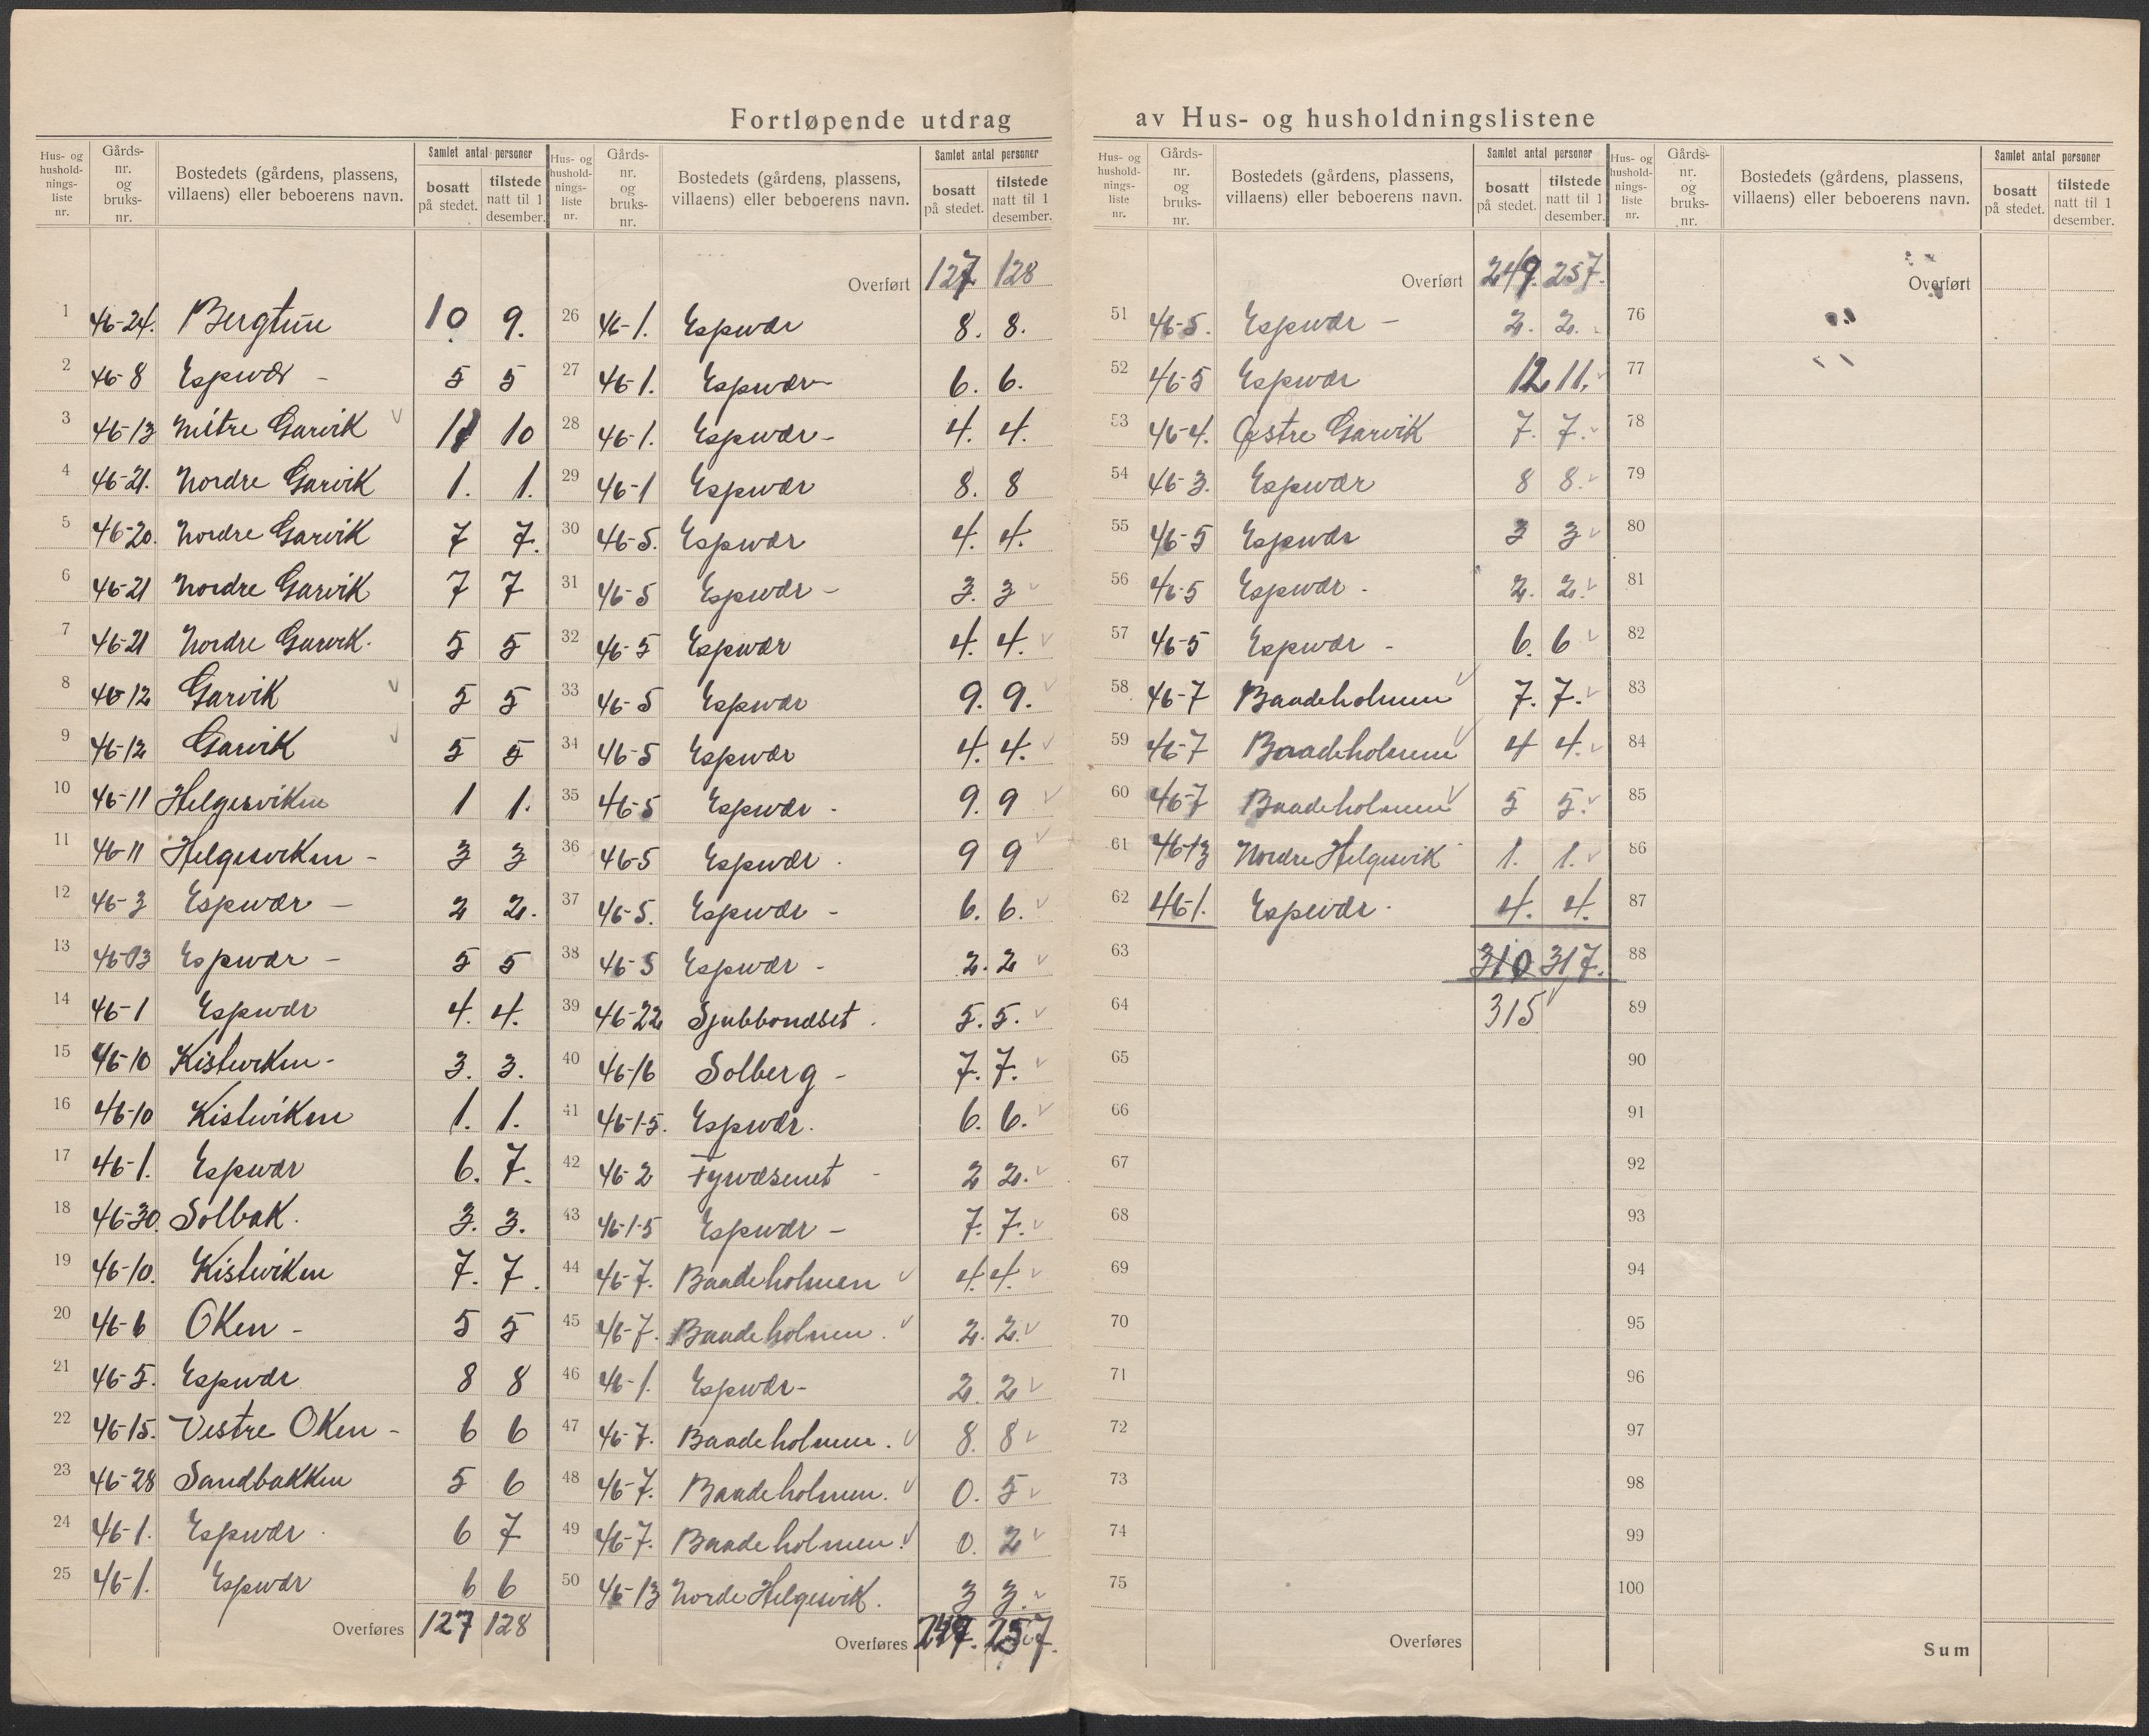 Fortløpende utdrag av Hus- og husholdningslistene
Hus- og hushold-nings-liste nr. | Gårds-nr. og bruks-nr. | Bostedets (gårdens, plassens, villaens) eller beboerens navn. | Samlet antal personer | bosatt på stedet. | tilstede natt til 1 desember.
1 46-24. Bergtun 10 9.
2 46-8 Espevær - 5 5
3 46-13 Mitre Garvik 11 10
4 46-21. Nordre Garvik 1. 1.
5 46-20. Nordre Garvik 7 7.
6 46-21 Nordre Garvik 7 7
7 46-21 Nordre Garvik. 5 5
8 46-12 Garvik 5 5
9 46-12 Garvik 5 5
10 46-11 Helgesviken 1 1.
11 46-11 Helgesviken - 3 3
12 46-3 Espevær - 2 2.
13 46-13 Espevær - 5 5
14 46-1 Espevær 4. 4.
15 46-10 Kistviken - 3. 3.
16 46-10 Kistviken 1. 1.
17 46-1. Espevær 6. 7.
18 46-30. Solbak. 3. 3.
19 46-10. Kistviken 7. 7.
20 46-6 Oken - 5 5
21 46-5. Espevær 8 8
22 46-15. Vestre Oken - 6 6
23 46-28 Sandbakken 5 6
24 46-1. Espevær 6 7
25 46-1. Espevær 6 6
Overføres 127 128
Hus- og hushold-nings-liste nr. | Gårds-nr. og bruks-nr. | Bostedets (gårdens, plassens, villaens) eller beboerens navn. | Samlet antal personer | bosatt på stedet. | tilstede natt til 1 desember.
Overført 127 128
26 46-1. Espevær 8. 8.
27 46-1. Espevær 6. 6.
28 46-1. Espevær - 4. 4.
29 46-1 Espevær 8. 8
30 46-5. Espevær 4. 4.
31 46-5 Espevær - 3. 3
32 46-5 Espevær 4. 4.
33 46-5 Espevær 9. 9.
34 46-5 Espevær 4. 4.
35 46-5 Espevær - 9. 9
36 46-5 Espevær . 9 9
37 46-5. Espevær - 6. 6.
38 46-5 Espevær - 2. 2
39 46-22 5. 5.
40 46-16 Solberg - 7. 7.
41 46-1-5. Espevær. 6. 6.
42 46-2 Fyrvæsenet - 2 2.
43 46-1-5 Espevær - 7. 7.
44 46-7. Baadeholmen 4. 4.
45 46-7. Baadeholmen. 2. 2.
46 46-1. Espevær - 2. 2
47 46-7. Baadeholmen. 8. 8
48 46-7. Baadeholmen. 0. 5
49 46-7. Baadeholmen. 0. 2
50 46-13 Nordre Helgesvik. 3 3.
Overføres 249. 257.
Hus- og hushold-nings-liste nr. | Gårds-nr. og bruks-nr. | Bostedets (gårdens, plassens, villaens) eller beboerens navn. | Samlet antal personer | bosatt på stedet. | tilstede natt til 1 desember.
Overført 249. 257.
51 46-5. Espevær - 2. 2.
52 46-5 Espevær 12 11.
53 46-4. Østre Garvik 7. 7.
54 46-3. Espevær 8 8.
55 46-5 Espevær 3 3
56 46-5 Espevær . 2. 2.
57 46-5 Espevær - 6. 6
58 46-7 Baadeholmen 7. 7.
59 46-7 Baadeholmen 4 4.
60 46-7 Baadeholmen 5 5.
61 46-13 Nordre Helgesvik 1. 1.
62 46-1. Espevær. 4. 4.
63 310 317.
64 315
65
66
67
68
69
70
71
72
73
74
75
Overføres
Hus- og hushold-nings-liste nr. | Gårds-nr. og bruks-nr. | Bostedets (gårdens, plassens, villaens) eller beboerens navn. | Samlet antal personer | bosatt på stedet. | tilstede natt til 1 desember.
Overført
76
77
78
79
80
81
82
83
84
85
86
87
88
89
90
91
92
93
94
95
96
97
98
99
100
Sum